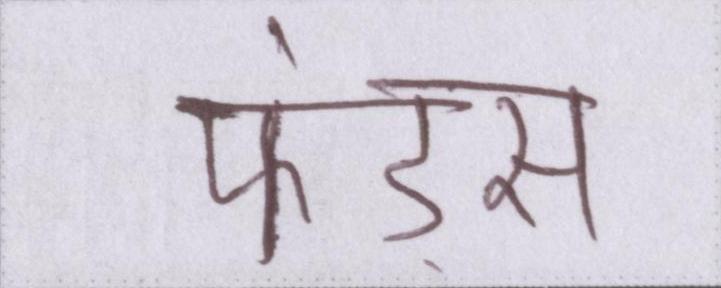 फंड़स